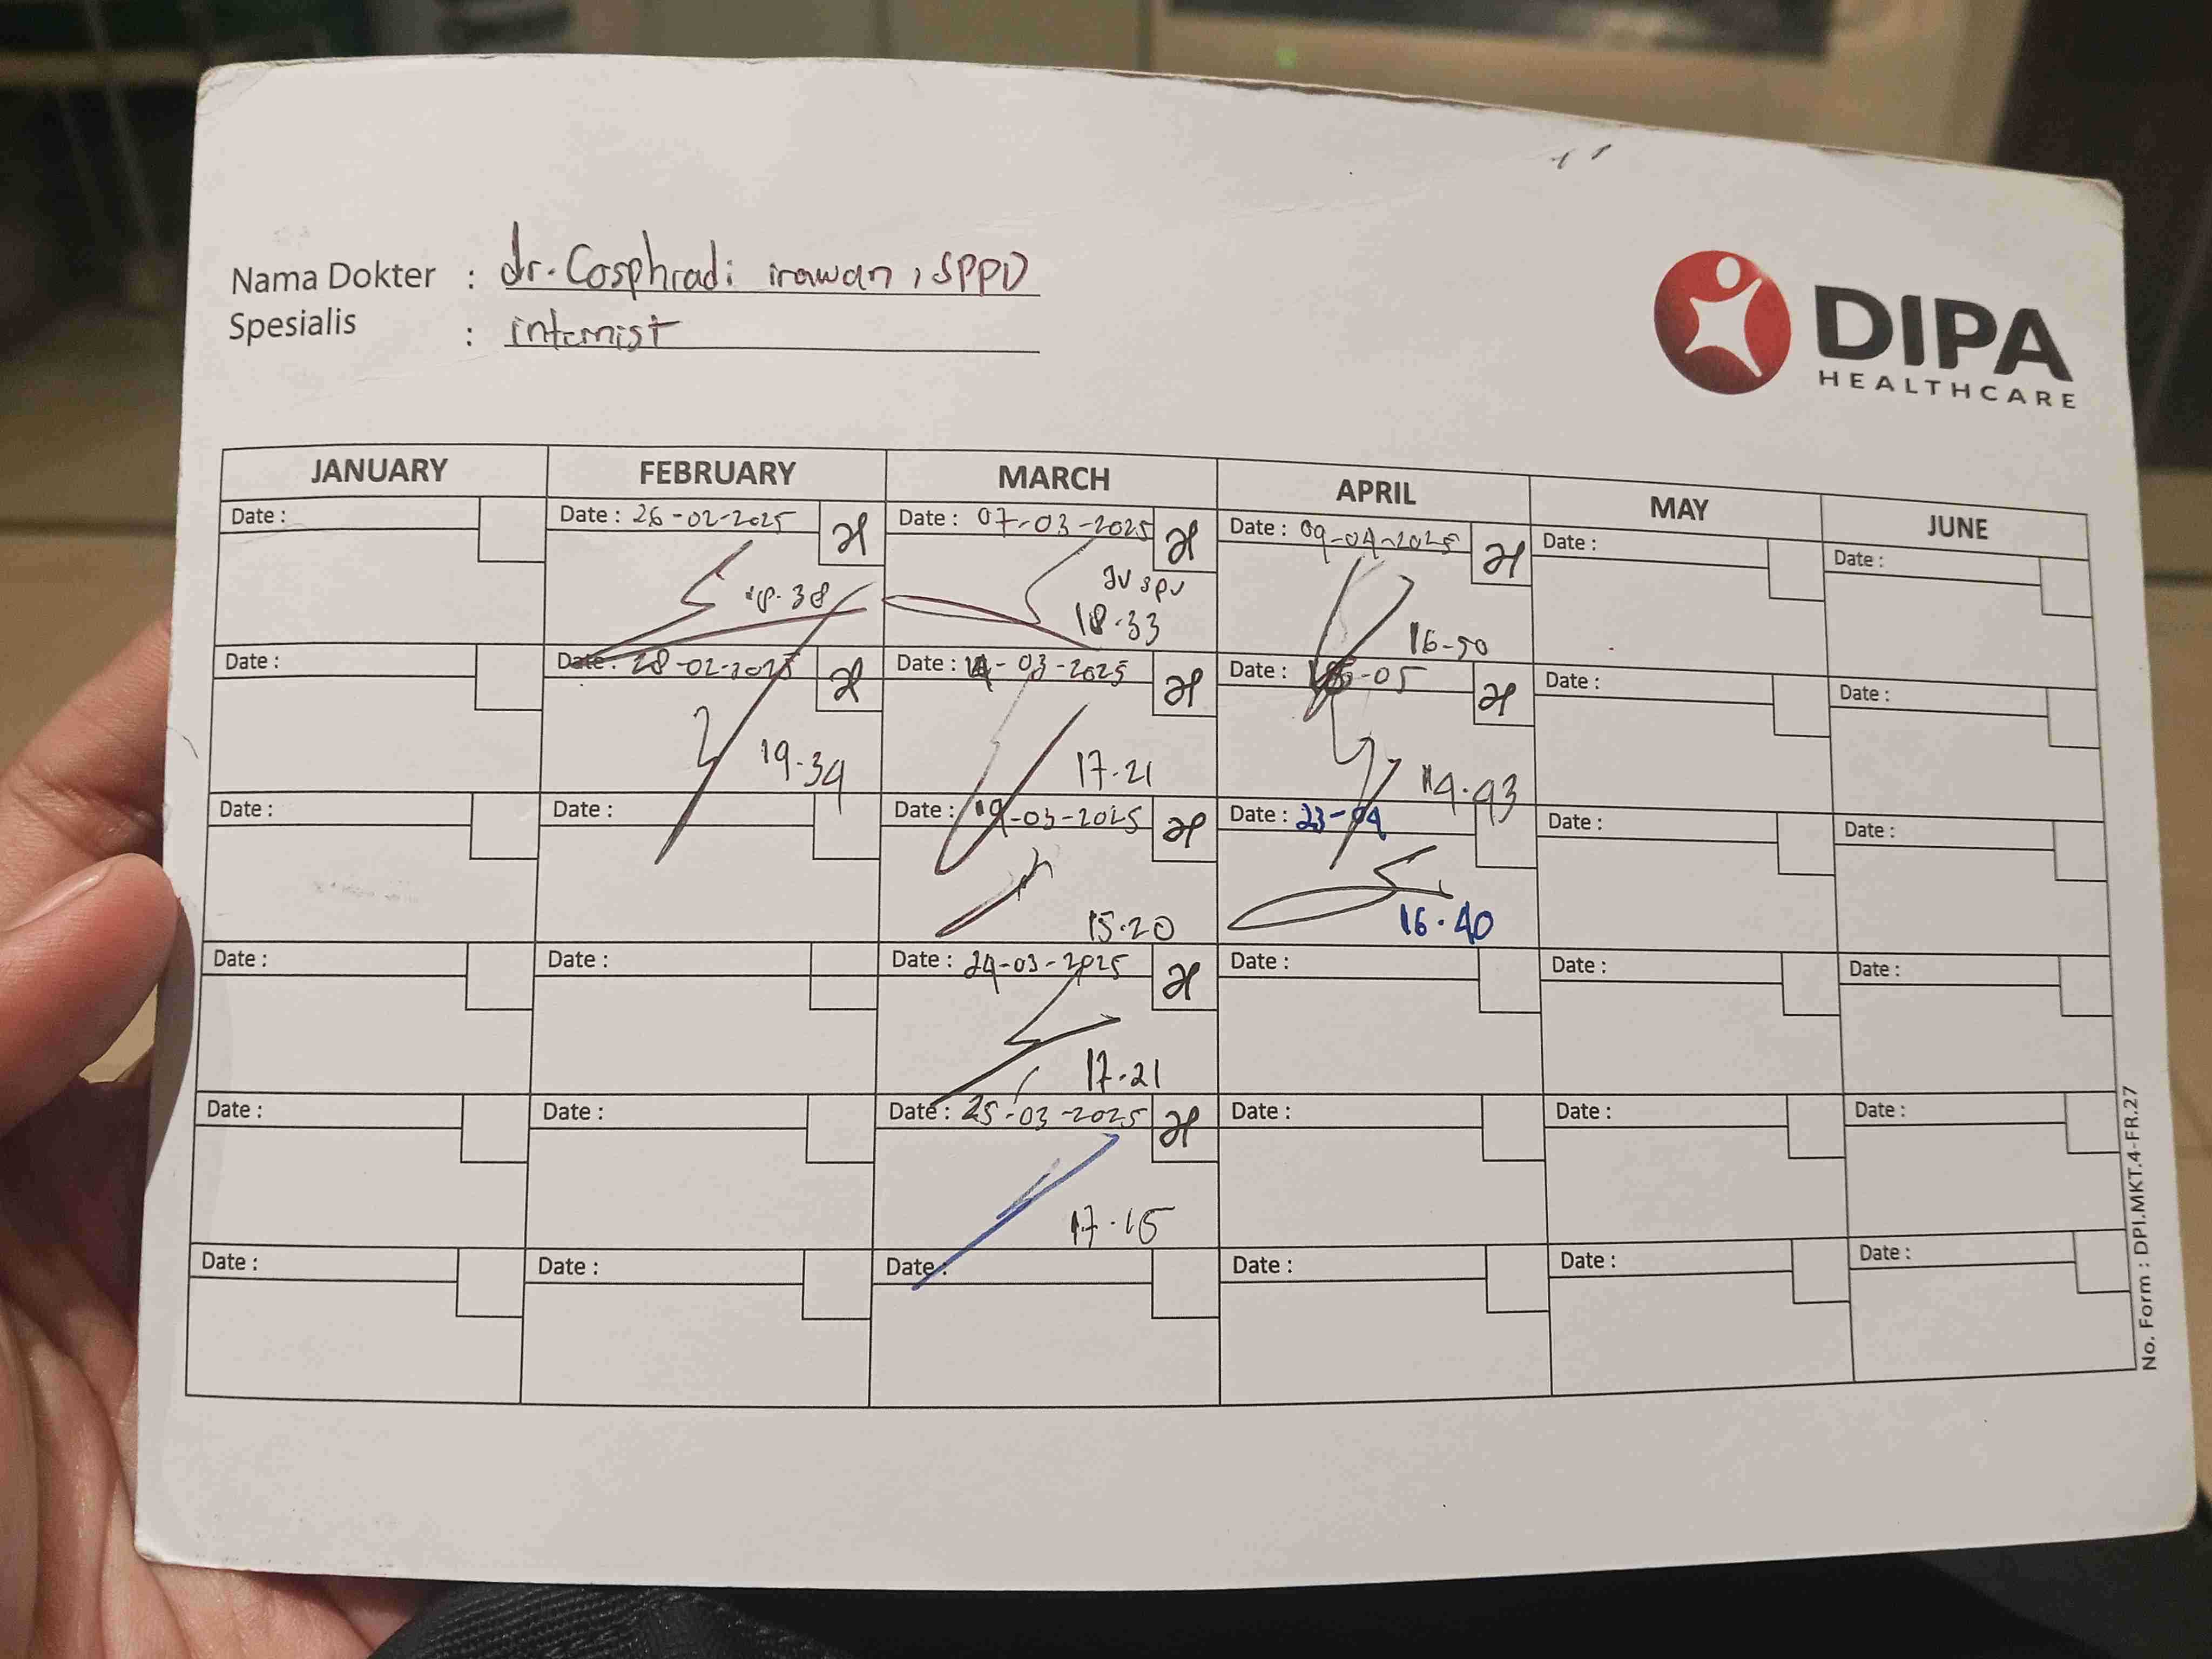 Nama Dokter : dr. Cosphradi irawan, SPPD
Spesialis : internist
DIPA
HEALTHCARE
JANUARY FEBRUARY MARCH APRIL MAY JUNE
Date : Date : 26-02-2025 Date : 07-03-2025 Date : 09-04-2025 Date : Date :
18.33
16-50
Date : Date : 28-02-2025 Date : 14-03-2025 Date : Date : Date :
19.34 17.21
Date : Date : Date : 19-03-2025 Date : 23-04 Date : Date :
15.20 16.40
Date : Date : Date : 24-03-2025 Date : Date : Date :
17.21
Date : Date : Date : 25-03-2025 Date : Date : Date :
17.15
Date : Date : Date : Date : Date : Date :
No. Form : DPI.MKT.4-FR.27